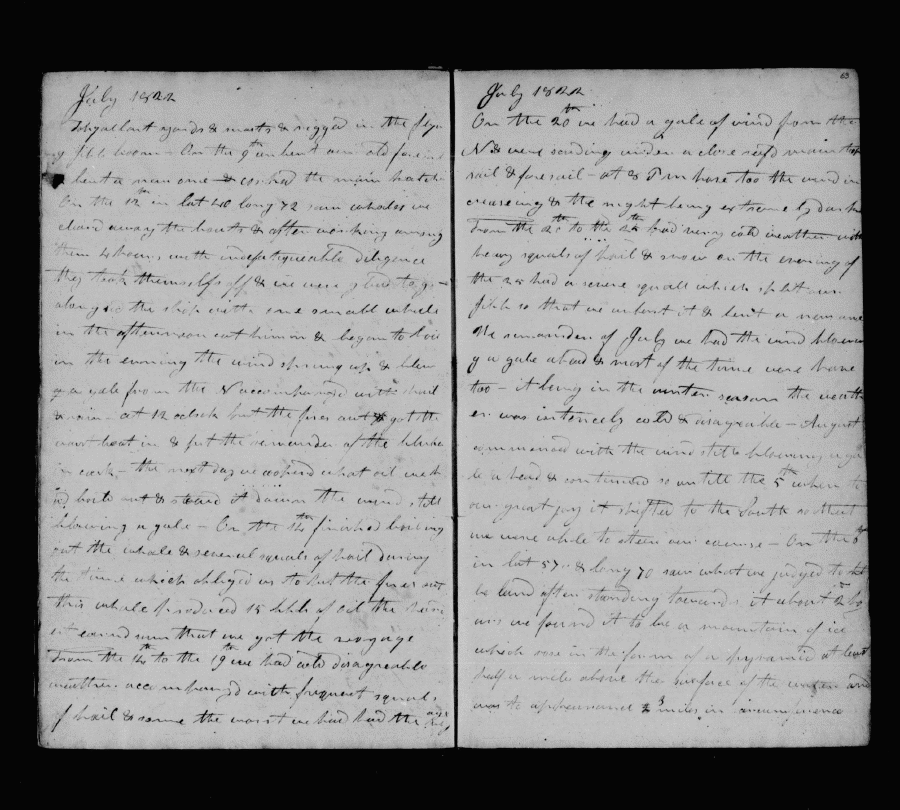 July 1822
Topgallant yards & masts & rigged in the flyin
g jibb boom - On the 9th unbent our old foresail
& bent a new one & the main hatch
On the 12th in lat 40 long 72 saw whales we
cleard away the boats & after working among
them 4 hours with indefatiqueable diligence
they took themselfs off & we were glad to go
along side the ship with one small whale
in the afternoon cut him in & began to boil
in the evening the wind sprung up & blew
g a gale from the N accompanied with hail
& rain - at 12 oclock put the fires out & got the
waist boat in & put the remainder of the blubber
in cask - the next day we coopered what oil we h
ad boild out & stowd it down the wind still
blowing a gale - On the 14th finished boiling
out the whale & several squals of hail during
the time which obliged us to put the fires out
this whale produced 15 bbls of oil the
est earned um that we got the voyage
From the 14th to the 19th we had cold disagreeable
weather accompanyd with frequent squals
of hail & some the worst we had had the
July 1822
63
On the 20th we had a gale of wind from the
N & were scuding under a close reefd main top
sail & foresail - at 8 P m hove too the wind in
creaseing & the night being extreamely dark
From the 20th to the 24th had very cold weather with
heavy squals of hail & snow on the evening of
the 25 had a severe squall which split our
jibb so that we unbent it & bent a new one
The remainder of July we had the wind blowin
g a gale ahead & most of the time were hove
too - it being in the winter season the weath
er was intencely cold & disagreable - August
commenced with the wind still blowing a ga
le a head & continued so untill the 5th when to
our great joy it shifted to the South so that
we were able to steer our course - On the 6th
in lat 57 & long 70 saw what we judged to
be land after standing towards it about 2 ho
urs we found it to be a mountain of ice
which rose in the form of a pyramid at least
half a mile above the surface of the water and
was to appearance 3 miles in circumference